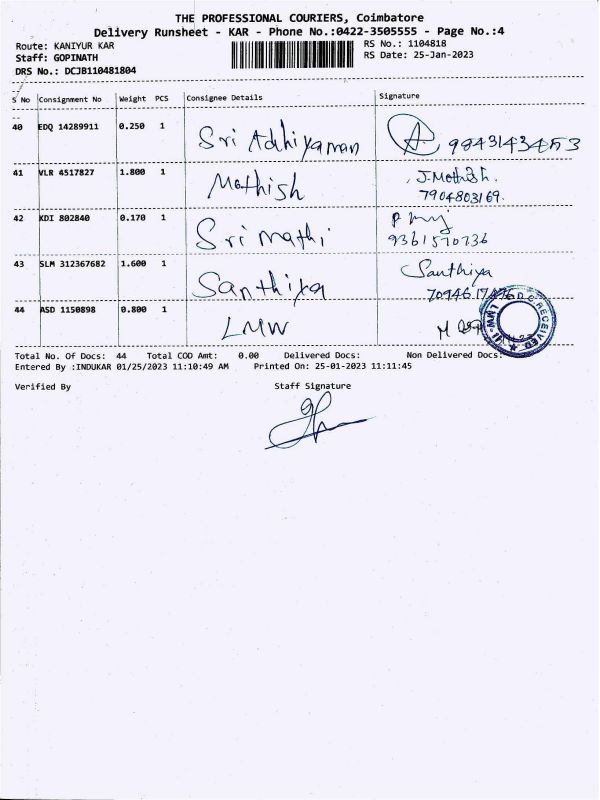 THE PROFESSIONAL COURIERS, Coimbatore
Delivery Runsheet - KAR - Phone No.:0422-3505555 - Page No.:4
Route: KANIYUR KAR RS No.: 1104818
Staff: GOPINATH RS Date: 25-Jan-2023
DRS No.: DCJB110481804
S No Consignment No Weight PCS Consignee Details Signature
40 EDQ 14289911 0.250 1 Sri Adhiyaman 9943143453
41 VLR 4517827 1.800 1 Mathish J.Mathish.
7904803169.
42 KDI 802840 0.170 1 Sri mathi
9361570736
43 SLM 312367682 1.600 1 Santhiya Santhiya
44 ASD 1150898 0.800 1 LMW
RECEIVED
Total No. Of Docs: 44 Total COD Amt: 0.00 Delivered Docs: Non Delivered Docs:
Entered By :INDUKAR 01/25/2023 11:10:49 AM Printed On: 25-01-2023 11:11:45
Verified By Staff Signature